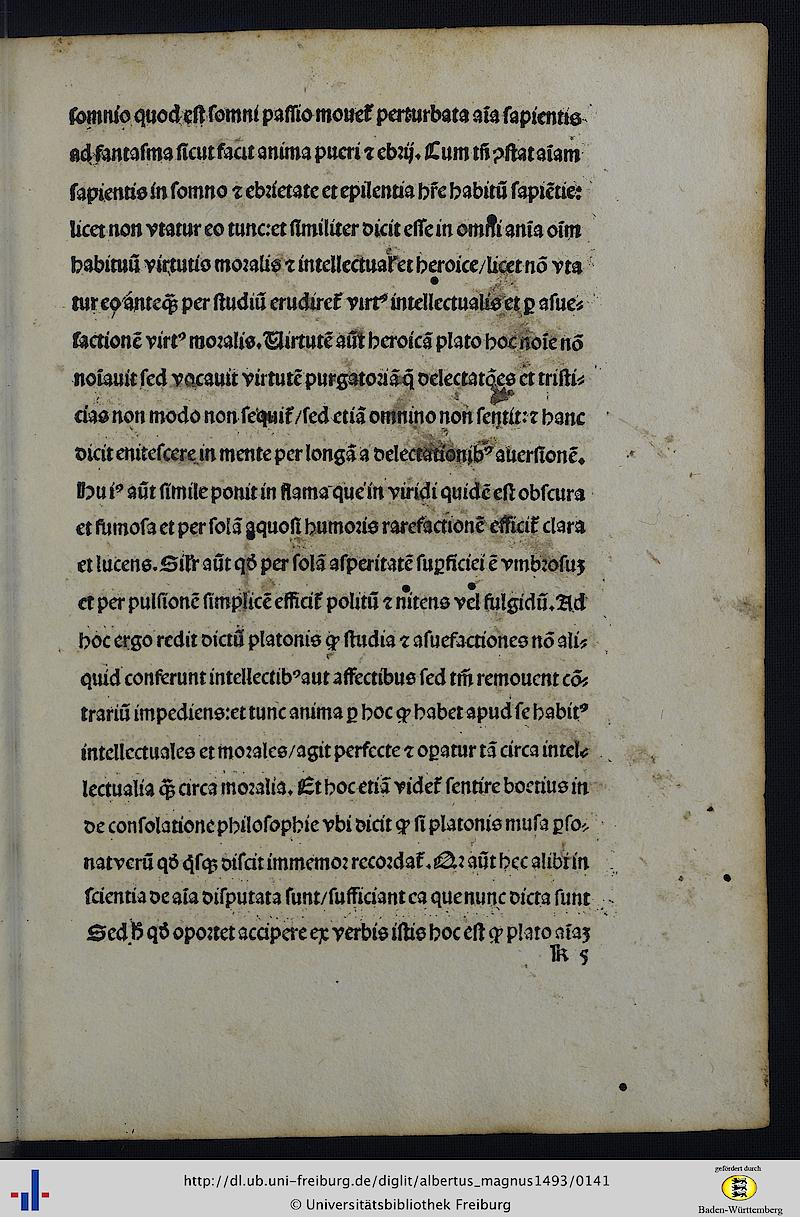 somnio quod est somni passio mouet᷑ perturbata aīa sapientis
ad fantasma sicut facit anima pueri ⁊ ebrij. Cum tñ ꝯstat aīam
sapientis in somno ⁊ ebrietate et epilentia hr̄e habitū sapiētie:
licet non vtatur eo tunc: et similiter dicit esse in omni anīa oīm
habituū virtutis moralis ⁊ intellectual᷑ et heroice/ licet nō vta
tur eo anteq̄ꝫ per studiū erudiret᷑ virtꝰ intellectualis et ꝑ asue⸗
factionē virtꝰ moralis. Uirtutē aūt heroicā plato hoc noīe nō
noīauit sed vocauit virtutē purgatoriā q̄ delectatōes et tristi⸗
cias non modo non sequit᷑/ sed etiā omnino non sentit: ⁊ hanc
dicit enitescere in mente per longā a delectationibꝰ auersionē.
Huiꝰ aūt simile ponit in flama que in viridi quidē est obscura
et fumosa et per solā aquosi humoris rarefactionē efficit᷑ clara
et lucens. Silr aūt qd̄ per solā asperitatē suꝑficiei ē vmbrosuꝫ
et per pulsionē simplicē efficit᷑ politū ⁊ nitens vel fulgidū. Ad
hoc ergo redit dictū platonis ꝙ studia ⁊ asuefactiones nō ali⸗
quid conferunt intellectibꝰ aut affectibus sed tm̄ remouent cō⸗
trariū impediens: et tunc anima ꝑ hoc ꝙ habet apud se habitꝰ
intellectuales et morales/ agit perfecte ⁊ oꝑatur tā circa intel⸗
lectualia q̄ꝫ circa moralia. Et hoc etiā videt᷑ sentire boetius in
de consolatione philosophie vbi dicit ꝙ si platonis musa ꝑso⸗
nat verū qd̄ q̇sqꝫ discit immemor recordat᷑. Qr aūt hec alibi in
scientia de aīa disputata sunt/ sufficiant ea que nunc dicta sunt
Sed h̄ qd̄ oportet accipere ex verbis istis hoc est ꝙ plato aīaꝫ
k 5
http://dl.ub.uni-freiburg.de/diglit/albertus_magnus1493/0141
© Universitätsbibliothek Freiburg
gefördert durch
Baden-Württemberg